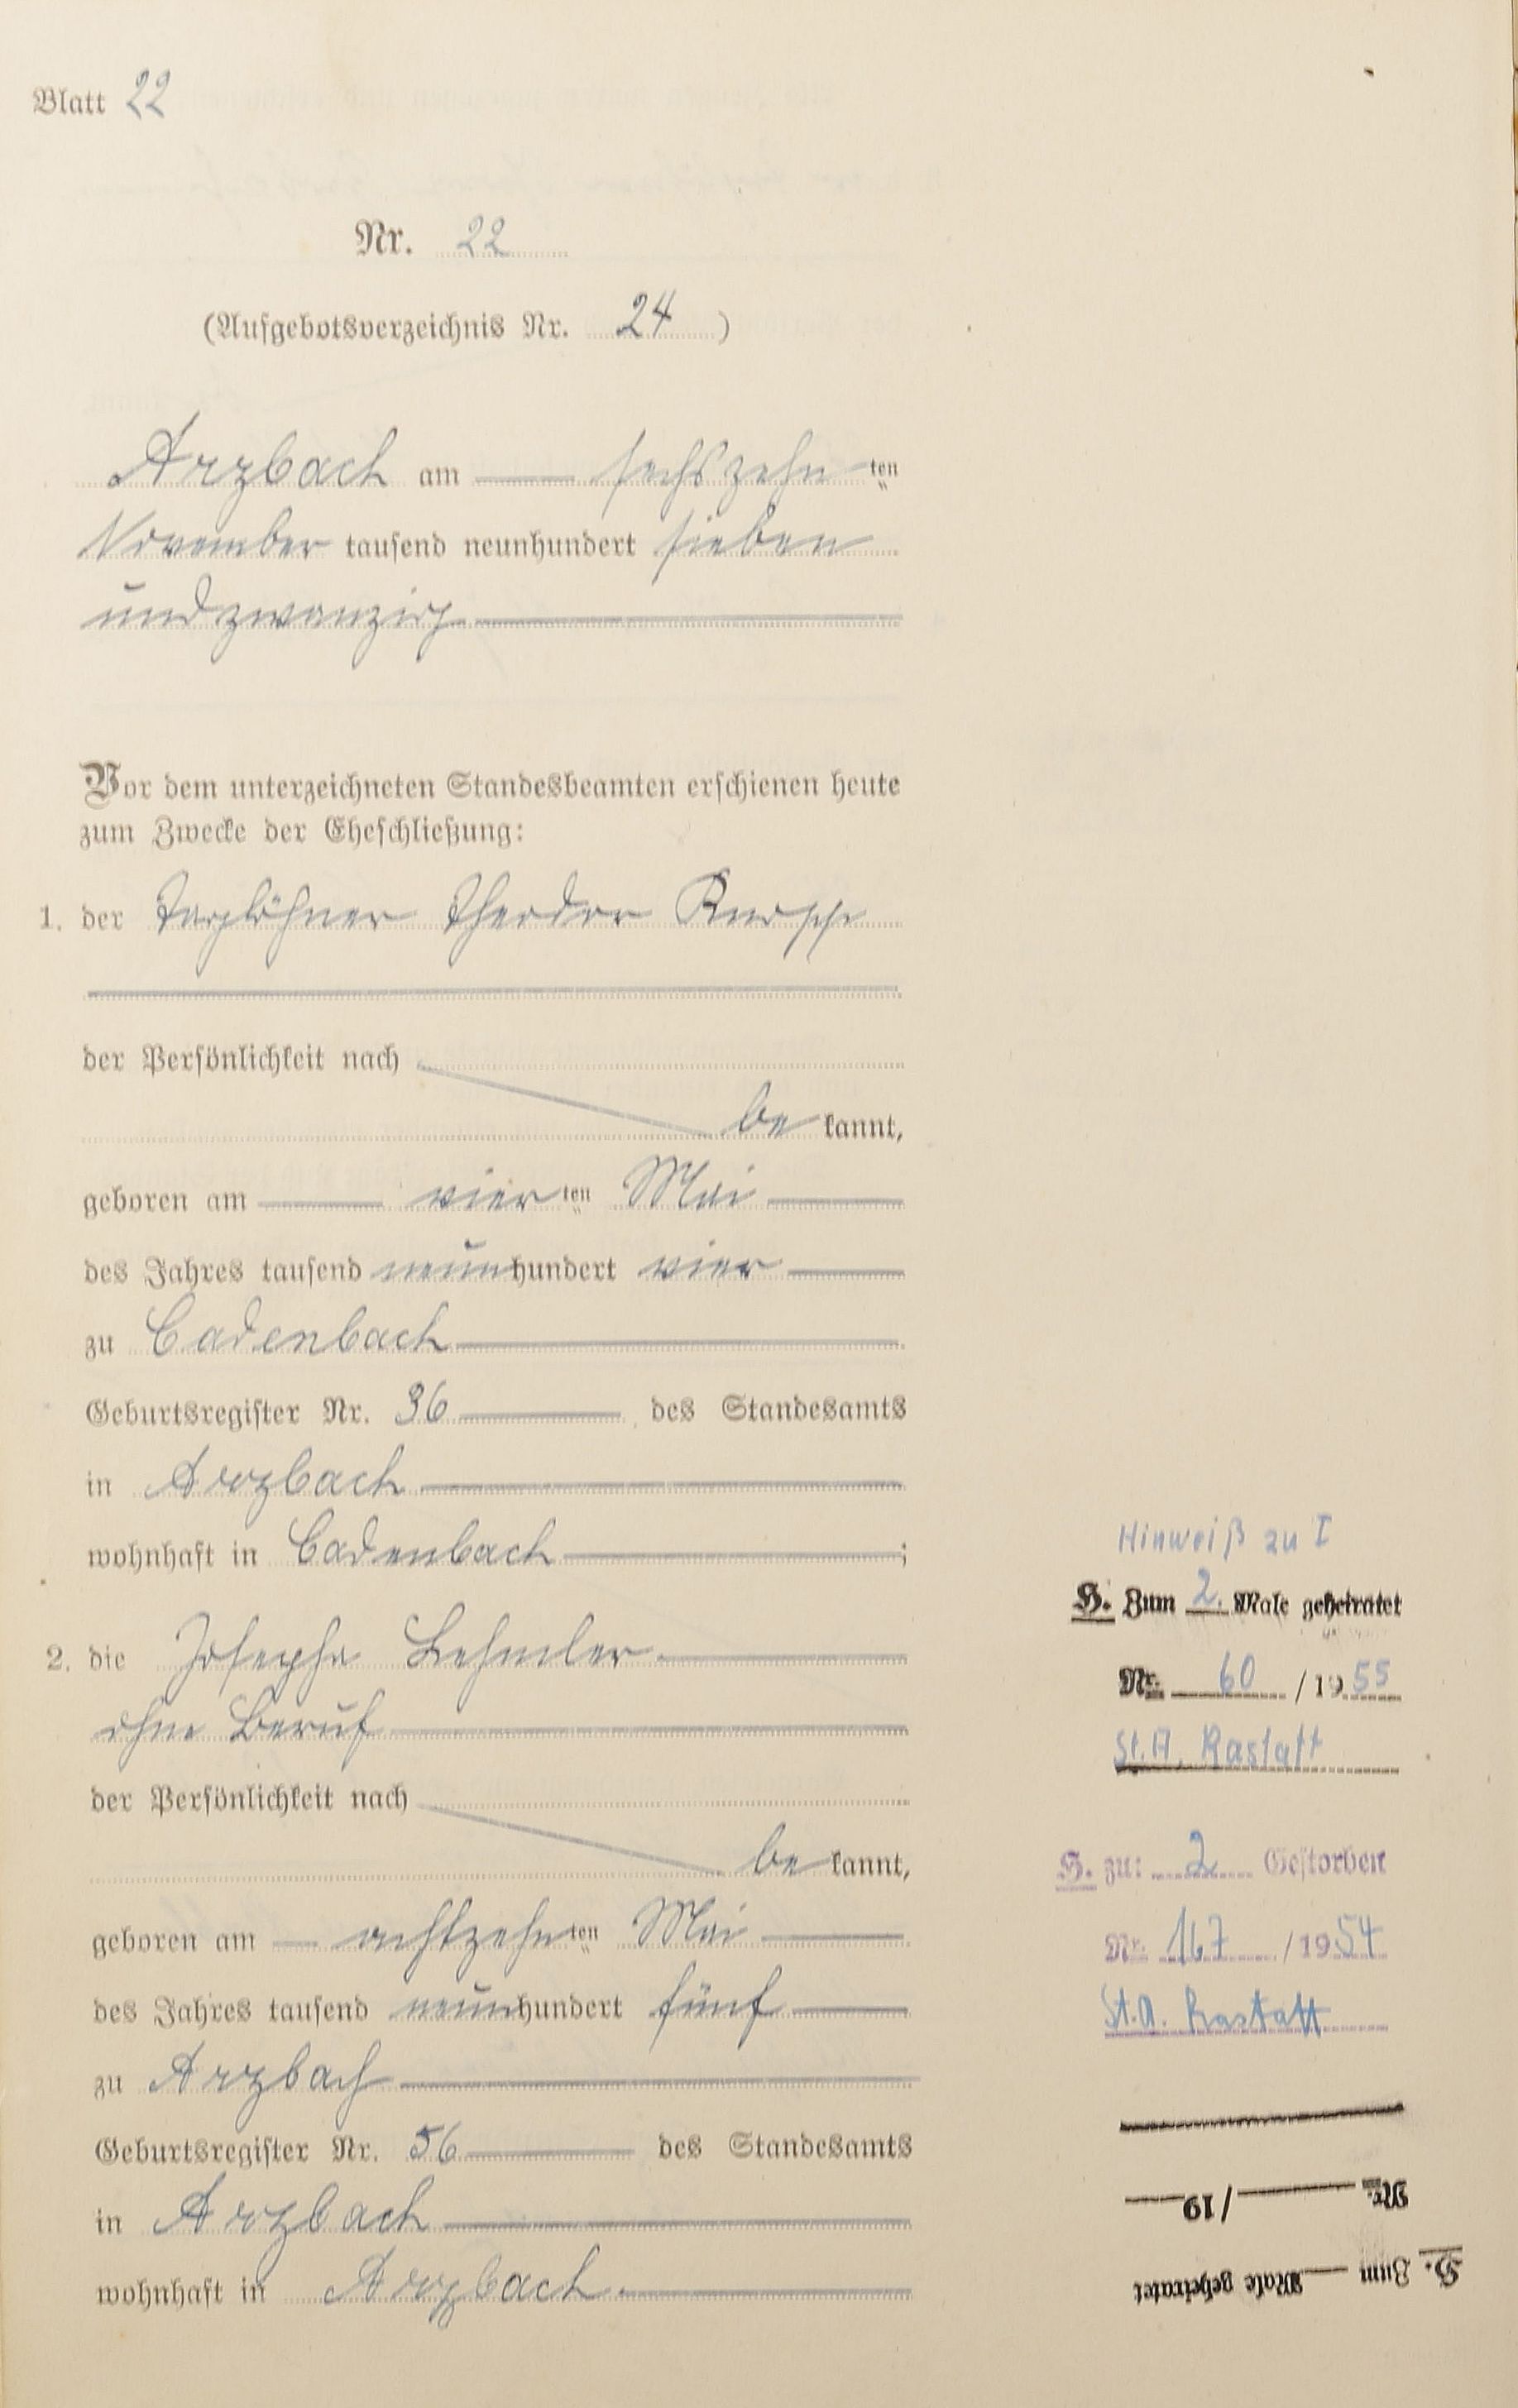 Blatt 22
Nr. 22
(Aufgebotsverzeichnis Nr. 24)
Arzbach am sechszehn ten
November tausend neunhundert sieben
und zwanzig
Vor dem unterzeichneten Standesbeamten erschienen heute
zum Zwecke der Eheschließung:
1. der Taglöhner Theodor Knopp
der Persönlichkeit nach
be kannt,
geboren am vier ten Mai
des Jahres tausend neun hundert vier
zu Cadenbach
Geburtsregister Nr. 36 des Standesamts
in Arzbach
wohnhaft in Cadenbach;
2. die Josepha Lehmler
ohne Beruf
der Persönlichkeit nach
be kannt,
geboren am achtzehn ten Mai
des Jahres tausend neun hundert fünf
zu Arzbach
Geburtsregister Nr. 56 des Standesamts
in Arzbach
wohnhaft in Arzbach
Hinweiß zu I
H. Zum 2. Male geheiratet
Nr. 60 / 1955
St. A. Rastatt
H. zu: 2 Gestorben
Nr. 167 / 1954
St. A. Rastatt
Nr. / 19
H. Zum Male geheiratet